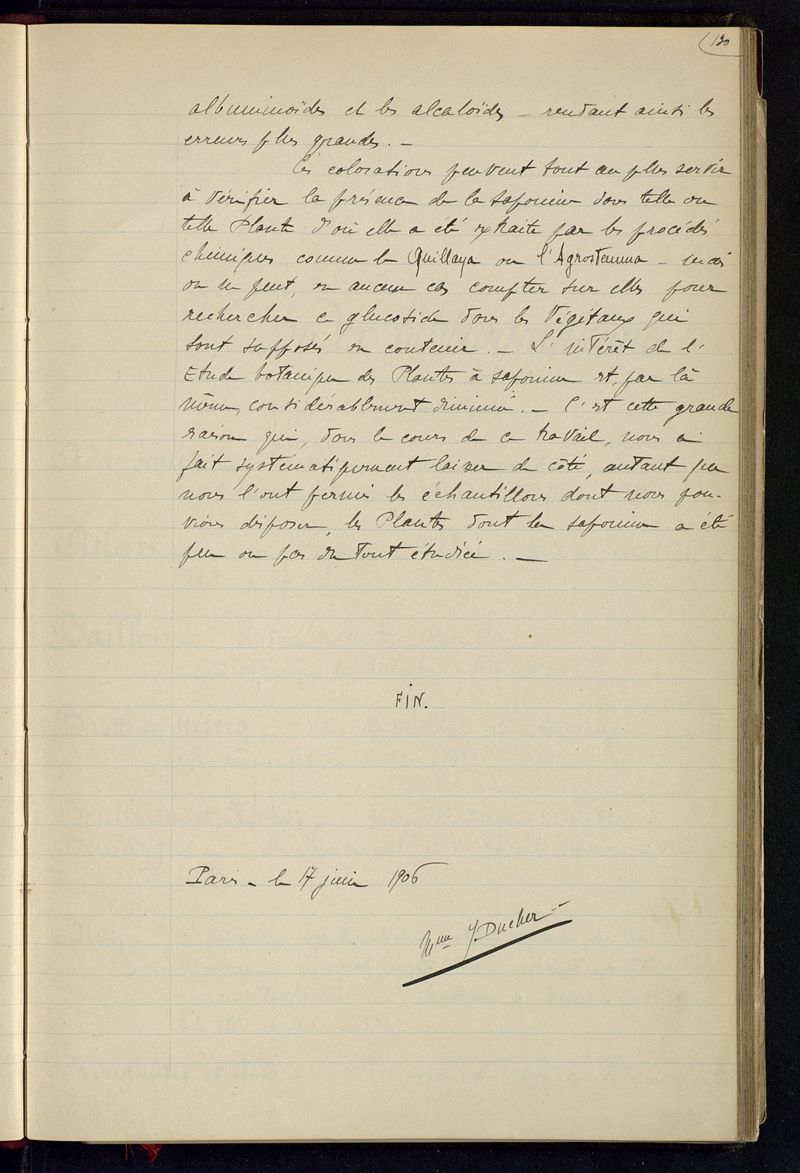 130
albuminoïdes et les alcaloïdes – rendant ainsi les
erreurs plus grandes. –
Ces colorations peuvent tout au plus servir
à vérifier la présence de la saponine dans telle ou
telle Plante d'où elle a été extraite par les procédés
chimiques comme le Quillaya ou l'Agrostemma – mais
on ne peut, en aucun cas compter sur elles pour
rechercher ce glucoside dans les Végétaux qui
sont supposés en contenir. – L'intérêt de l'
Etude botanique des Plantes à saponine est, par là
même, considérablement diminué. – C'est cette grande
raison qui, dans le cours de ce travail, nous a
fait systématiquement laisser de côté, autant que
nous l'ont permis les échantillons dont nous pou-
vions disposer, les Plantes dont la saponine a été
peu ou pas du tout étudiée. –
FIN.
Paris – le 17 juin 1906
Mme J. Ducher –